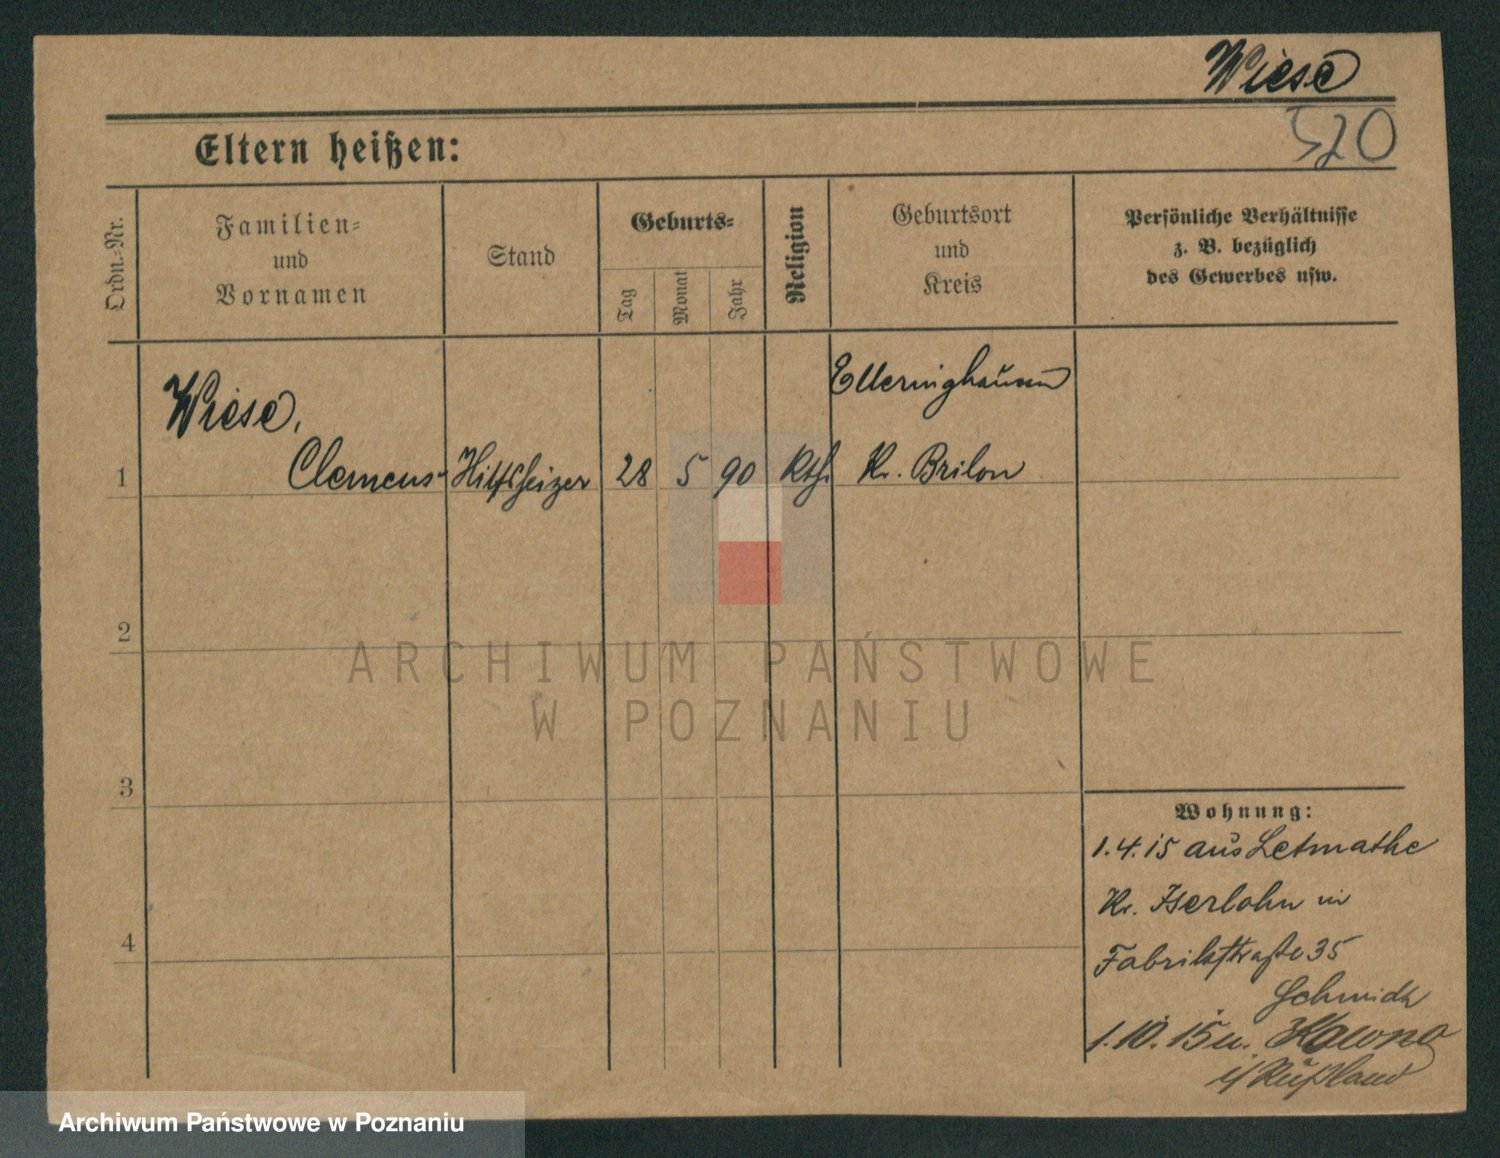 Wiese
520
Eltern heißen:
Ordn.-Nr.
Familien-
und
Vornamen
Stand
Geburts-
Tag
Monat
Jahr
Religion
Geburtsort
und
Kreis
Persönliche Verhältnisse
z. B. bezüglich
des Gewerbes usw.
Elleringhausen
Wiese,
1 Clemens Hilfsheizer 28 5 90 Kth. Kr. Brilon
2
ARCHIWUM PAŃSTWOWE
W POZNANIU
3
Wohnung:
1.4.15 aus Letmathe
Kr. Iserlohn in
Fabrikstraße 35
4
Schmidt
1.10.15 n. Kowno
i/Rußland
Archiwum Państwowe w Poznaniu